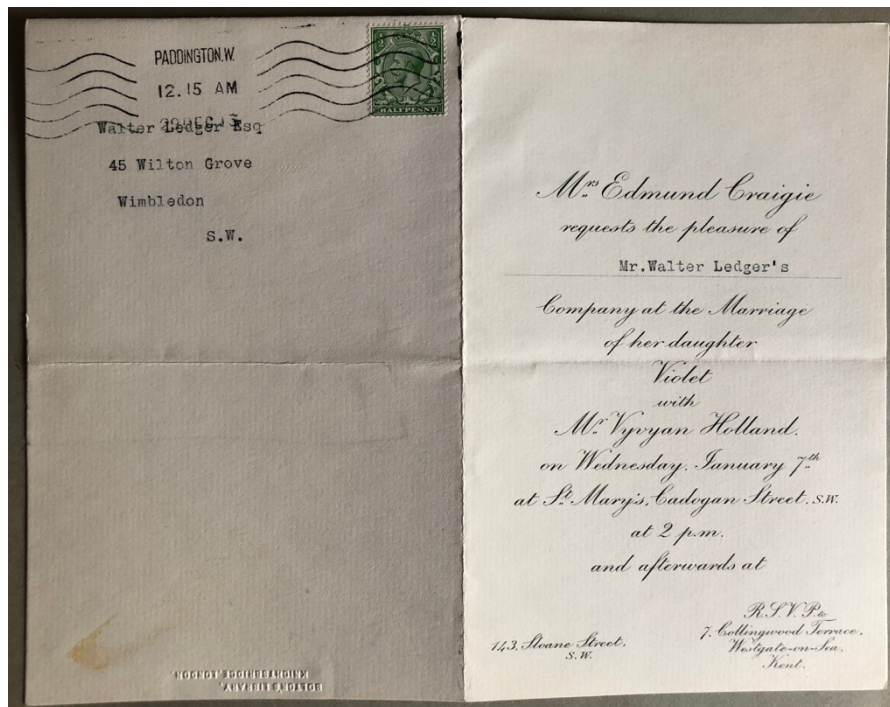 PADDINGTON.W.
12.15 AM
DEC 13
Walter Ledger Esq
45 Wilton Grove
Wimbledon
S.W.
HALFPENNY
BOLTON'S LIBRARY,
KNIGHTSBRIDGE, LONDON
Mrs Edmund Craigie
requests the pleasure of
Mr.Walter Ledger's
Company at the Marriage
of her daughter
Violet
with
Mr Vyvyan Holland.
on Wednesday, January 7th
at St Mary's, Cadogan Street. S.W.
at 2 p.m.
and afterwards at
143, Sloane Street.
S.W.
R.S.V.P. to
7, Collingwood Terrace.
Westgate-on-Sea.
Kent.